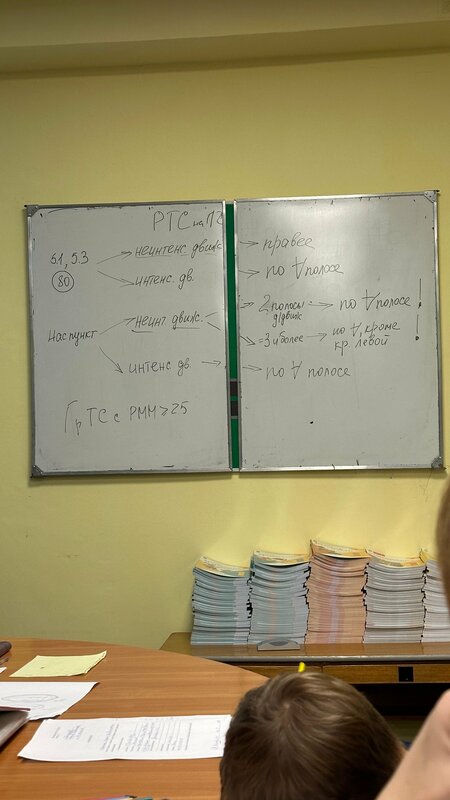 РТС на ПЧ
5.1, 5.3 → неинтенс. движ → правее
80 → интенс. дв. → по ∀ полосе
Нас пункт → неинт. движ. → 2 полосы д/движ → по ∀ полосе!
= 3 и более → по ∀, кроме кр. левой!
→ интенс. дв. → по ∀ полосе
Гр ТС с РММ ≥ 25